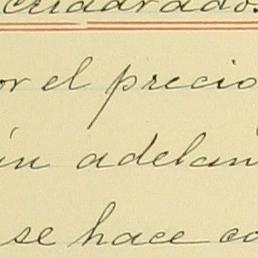 cuadrados
or el precio
ún adelan
se hace co